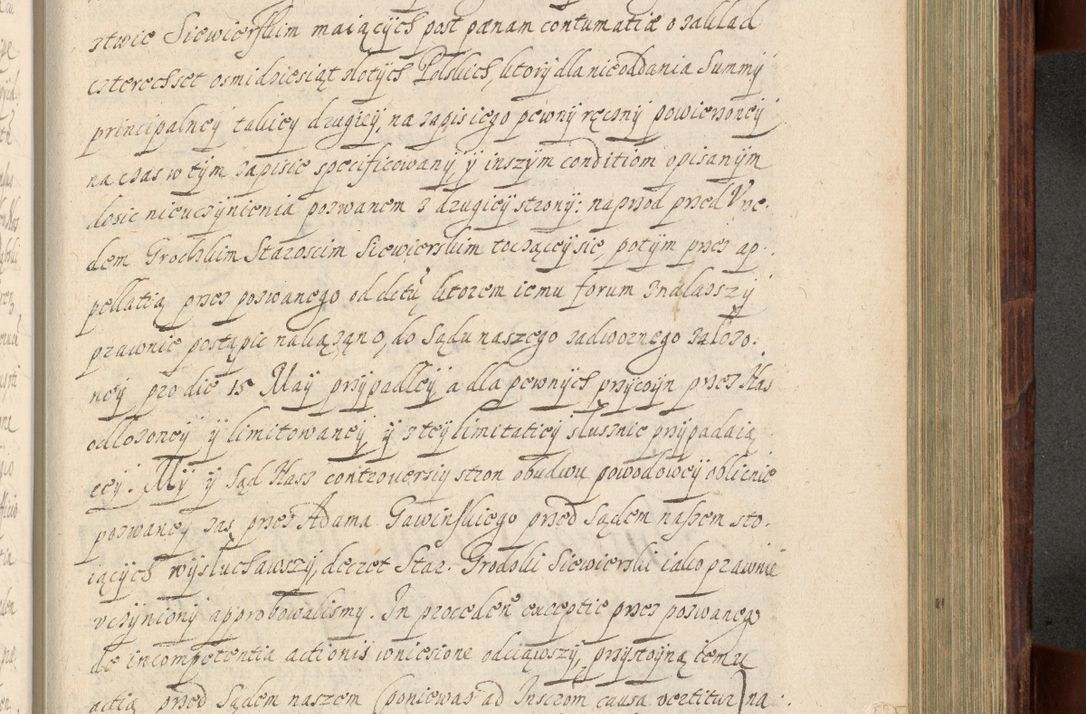 stwie Siewierskim maiących post panam contumatiæ o zakład
czterechset osmidziesiąt złotych Polskich, ktory dla nieoddania Summy
principalney takiey drugiey, na zapis iego pewny ręczny powierzoney
na czas w tym zapisie specificowany, y inszym conditiom opisanym
dosic nieuczynienia pozwanem z drugiey strony: naprzod przed Vrze.
dem Grodzkim Staroscim Siewierskim toczącey sie, potym przez ap.
pellatią przez pozwanego od detu ktorem iemu forum znalazszy
prawnie postąpic nakazano, do Sądu naszego zadwornego założo.
ney pro die 15 Maij przypadłey, a dla pewnych przyczyn przez Nas
odłożoney y limitowaney, y z tey limitatiey słusznie przypadaią,
cey. My y Sąd Nasz controversiy stron obudwu powodowey oblicznie
pozwaney zas przez Adama Gawinskiego przed Sądem naszem sto.
iących wysłuchawszy, decret Star. Grodzki Siewierski iako prawnie
vczyniony approbowalismy. In proceden exceptie przez pozwanego
de incompetentia actionis wniesione odciąwszy, przystoyną temu
actią przed Sądem naszem (poniewaz ad Inscrom causa vertitur) na